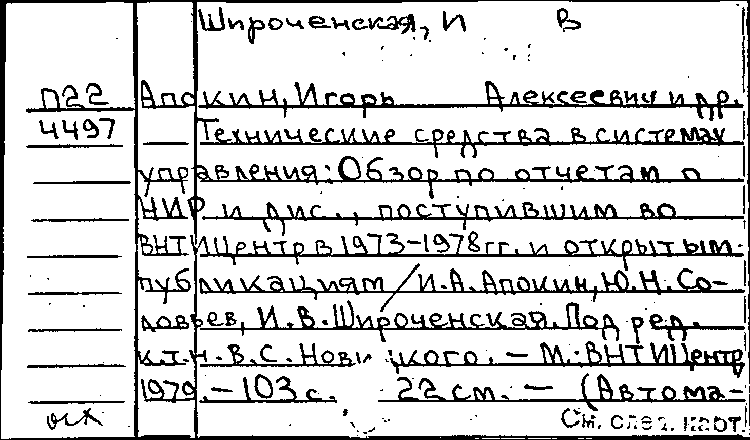 Широченская, И В
П22 Апокин, Игорь Алексеевич и др.
4497 Технические средства в системах
управления: Обзор по отчетам о
НИР и дис., поступившим во
ВНТИЦентр в 1973-1978гг. и открытым
публикациям / И.А. Апокин, Ю.Н. Со-
ловьев, И.В. Широченская. Под ред.
к.т.н. В.С. Новицкого. - М.: ВНТИЦентр,
1979. - 103 с. 22 см. - (Автома-
осх См. след. карт.